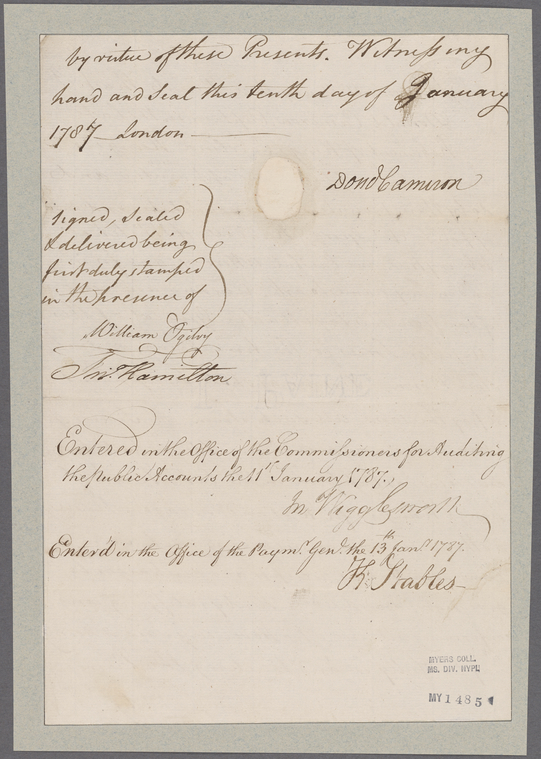 by virtue of these Presents. Witness my
hand and Seal this tenth day of January
1787 London
Dond Cameron
signed, sealed
& delivered being
first duly stamped
in the presence of
William Ogilvy
Jno. Hamilton
Entered in the Office of the Commissioners for Auditing
the public Accounts the 11th January 1787.
Jn Wigglesworth
Enter'd in the Office of the Paymr. Genl. the 13th Janr. 1787.
Stables
MYERS COLL.
MS. DIV. NYPL
MY 1485